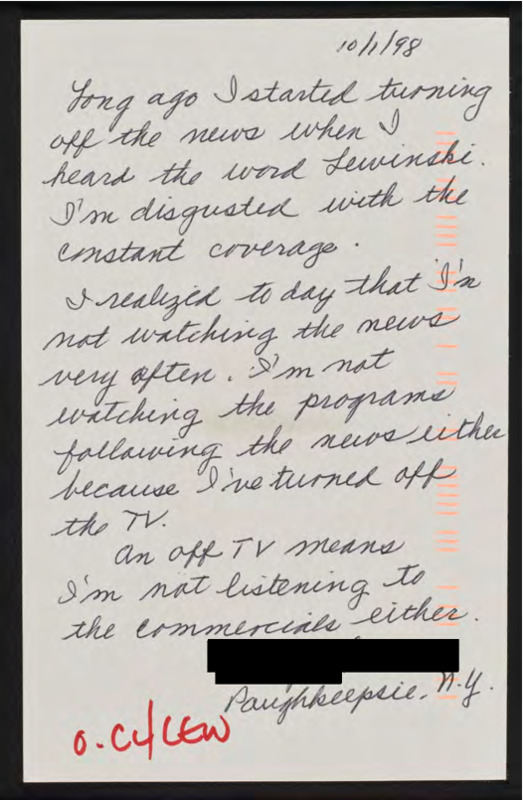 10/1/98
Long ago I started turning
off the news when I
heard the word Lewinski.
I'm disgusted with the
constant coverage.
I realized to day that I'm
not watching the news
very often. I'm not
watching the programs
following the news either
because I've turned off
the TV.
An off TV means
I'm not listening to
the commercials either.
Poughkeepsie, N.Y.
O.C4/LEW